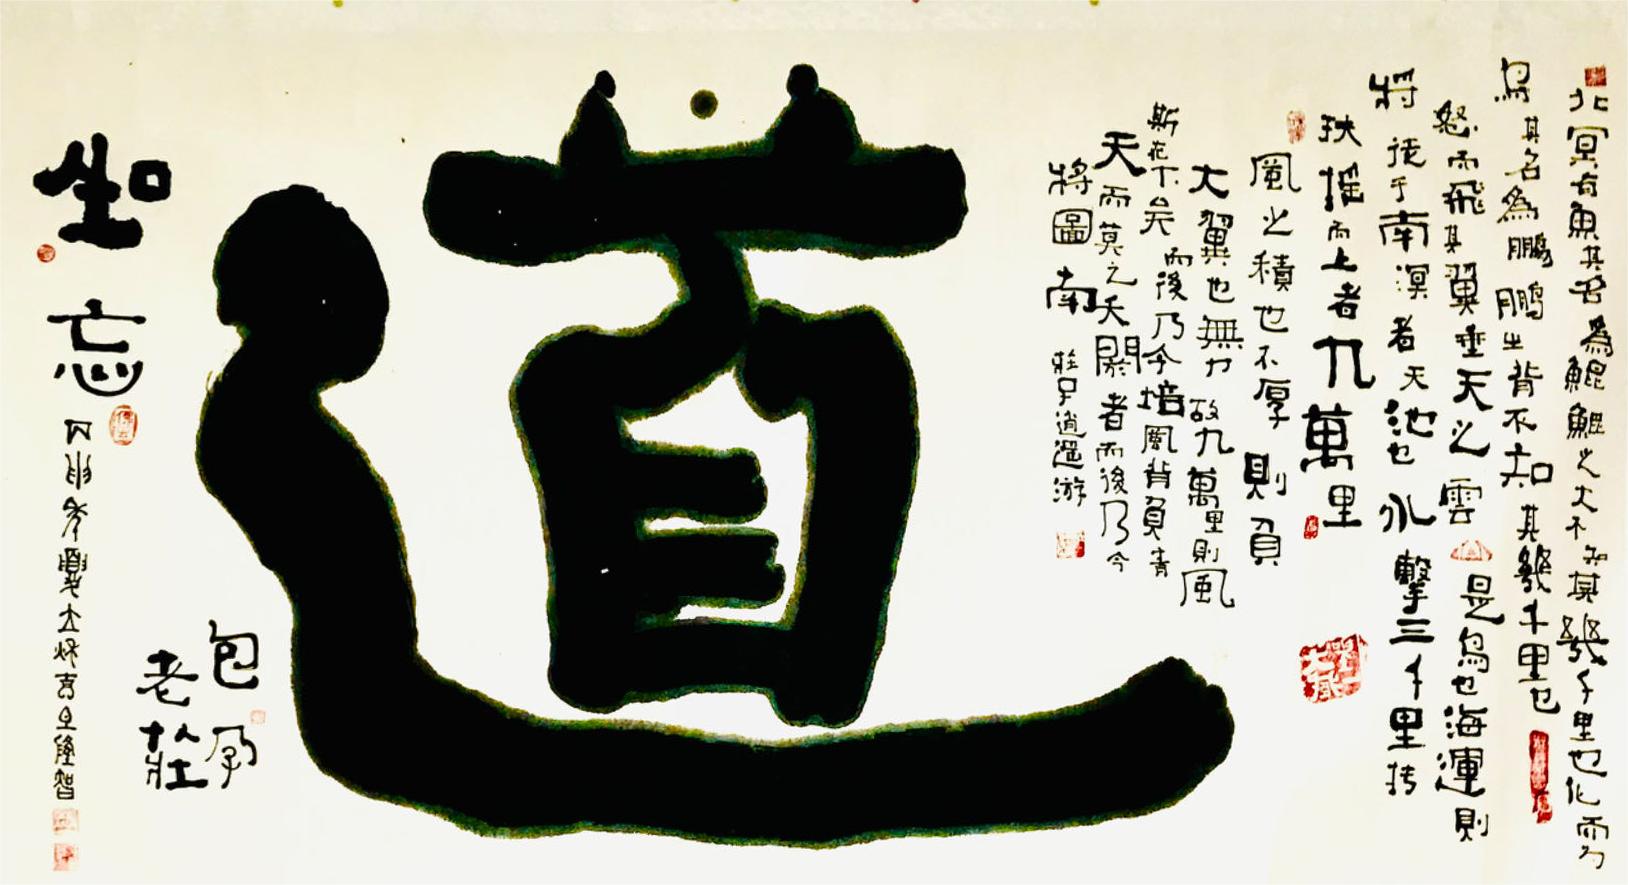 北冥有魚其名為鯤鯤之大不知其幾千里也化而為
鳥其名為鵬鵬之背不知其幾千里也
怒而飛其翼垂天之雲是鳥也海運則
將徙于南溟者天池也水擊三千里抟
扶搖而上者九萬里
風之積也不厚則負
大翼也無力故九萬里則風
斯在下矣而後乃今培風背負青
天而莫之夭閼者而後乃今
將圖南 莊子逍遙游
道
包孕
老莊
坐忘